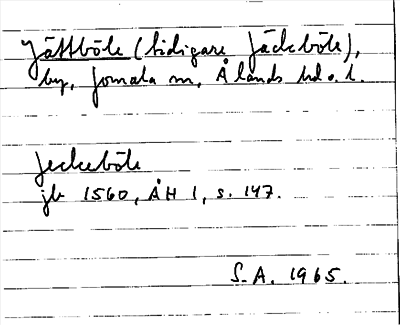 Jättböle (tidigare Jäckböle),
by, Jomala sn, Ålands hd o. l.
Jeckeböle
jb 1560, ÅH 1, s. 147.
S.A. 1965.